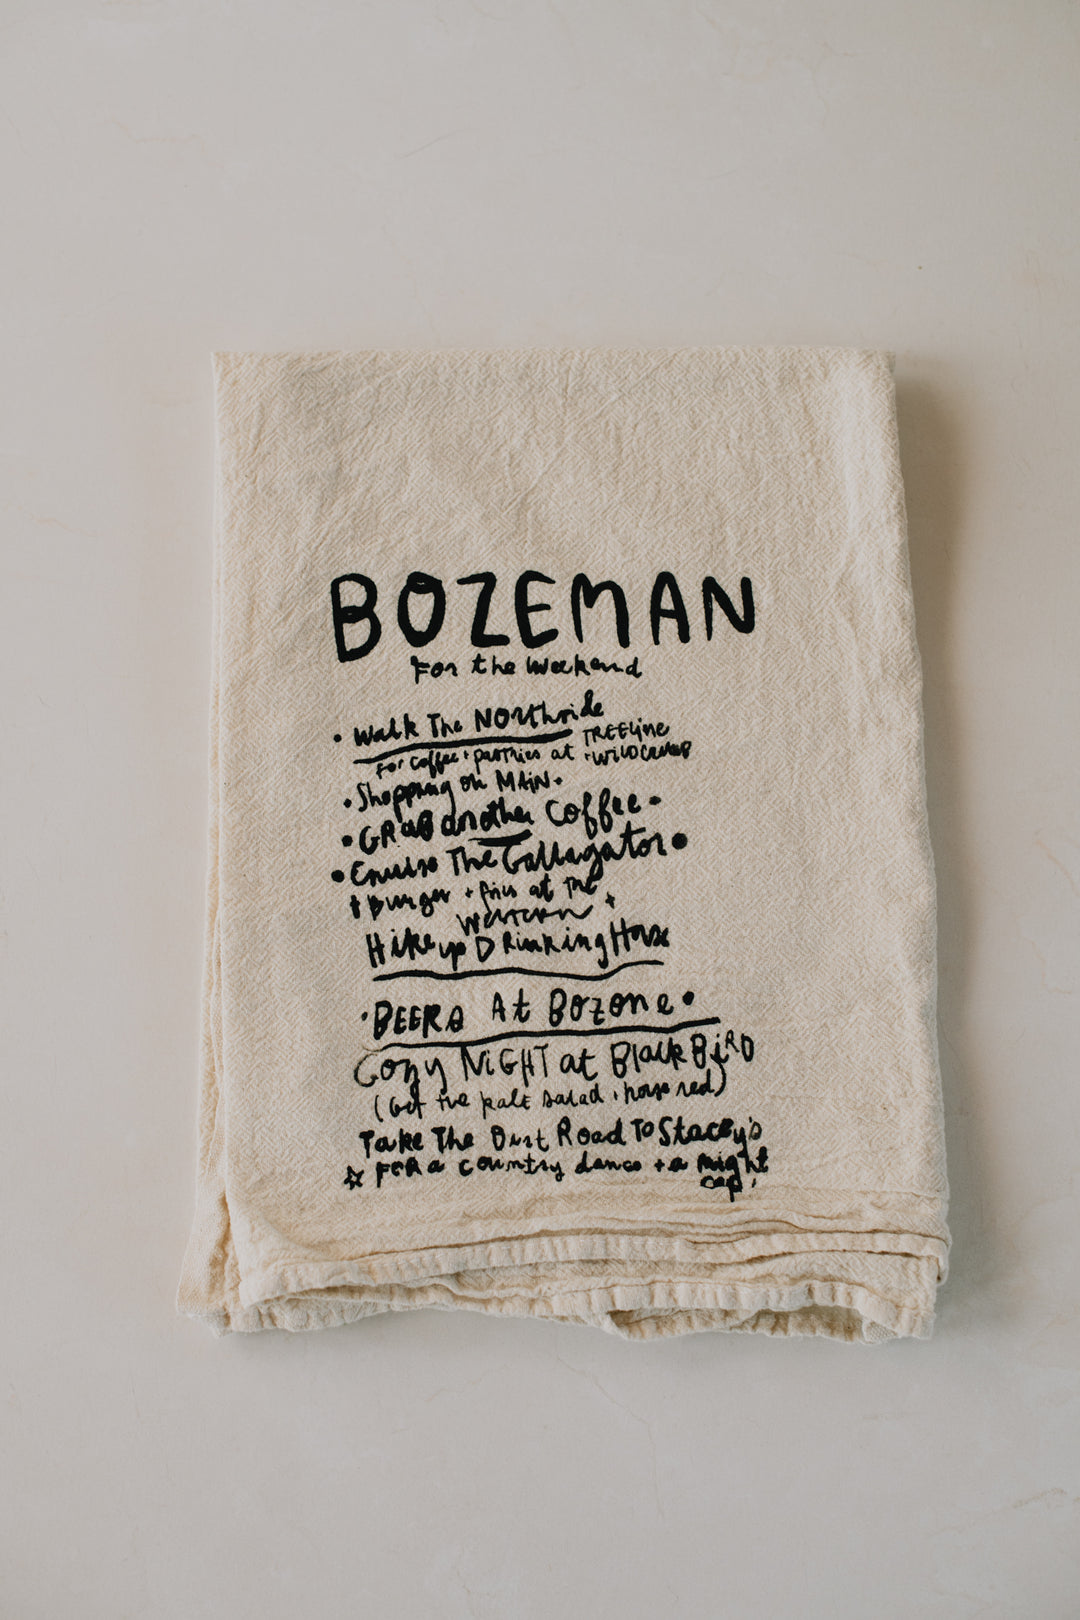 BOZEMAN
For the Weekend
• Walk The NORthside
For Coffee + pastries at TREELINE + WILDCRUMB
• Shopping on MAIN •
• GRAB another Coffee •
• Cruise The Gallagator •
+ Burger + fries at the
Western +
Hike up Drinking Horse
• BEERS At Bozone •
Cozy NIGHT at BlackBIRD
(Get the kale salad + house red)
Take The Dirt Road To Stacey's
☆ FOR a country dance + a night
cap!